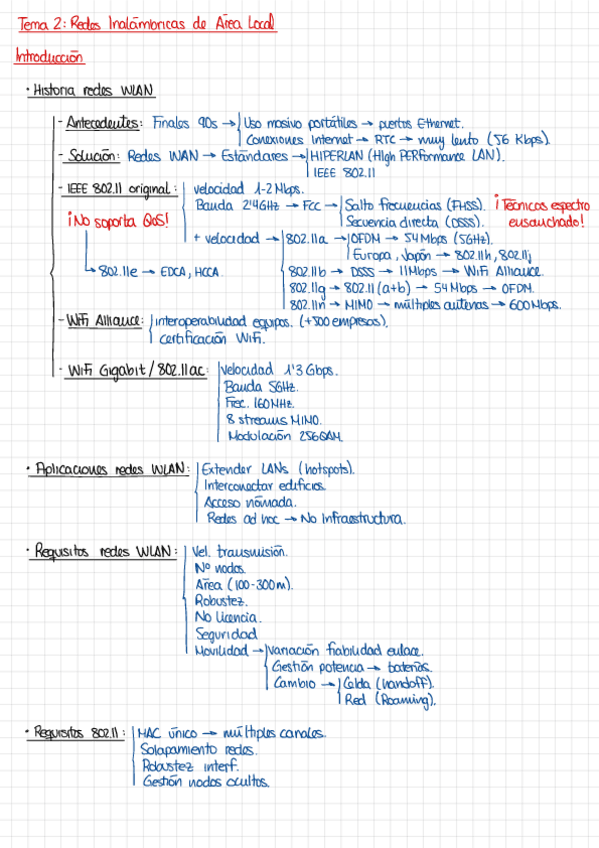 Tema 2: Redes Inalámbricas de Área Local
Introducción
· Historia redes WLAN
- Antecedentes: Finales 90s → Uso masivo portátiles → puertos Ethernet.
Conexiones Internet → RTC → muy lento (56 Kbps).
- Solución: Redes WAN → Estándares → HIPERLAN (HIgh PERformance LAN).
IEEE 802.11
- IEEE 802.11 original: velocidad 1-2 Mbps.
Banda 2'4GHz → FCC → Salto frecuencias (FHSS). ¡Técnicas espectro
¡No soporta QoS! Secuencia directa (DSSS). ensanchado!
+ velocidad → 802.11a → OFDM → 54 Mbps (5GHz).
Europa, Japón → 802.11h, 802.11j
↳ 802.11e → EDCA, HCCA. 802.11b → DSSS → 11Mbps → WiFi Alliance.
802.11g → 802.11 (a+b) → 54 Mbps → OFDM.
802.11n → MIMO → múltiples antenas → 600 Mbps.
- WiFi Alliance: interoperabilidad equipos. (+300 empresas).
certificación WiFi.
- WiFi Gigabit / 802.11ac: Velocidad 1'3 Gbps.
Banda 5GHz.
Frec. 160MHz.
8 streams MIMO.
Modulación 256QAM.
· Aplicaciones redes WLAN: Extender LANs (hotspots).
Interconectar edificios.
Acceso nómada.
Redes ad hoc → No Infraestructura.
· Requisitos redes WLAN: Vel. transmisión.
Nº nodos.
Área (100-300m).
Robustez.
No licencia.
Seguridad
Movilidad → Variación fiabilidad enlace.
Gestión potencia → baterías.
Cambio → Celda (handoff).
Red (Roaming).
· Requisitos 802.11: MAC único → múltiples canales.
Solapamiento redes.
Robustez interf.
Gestión nodos ocultos.